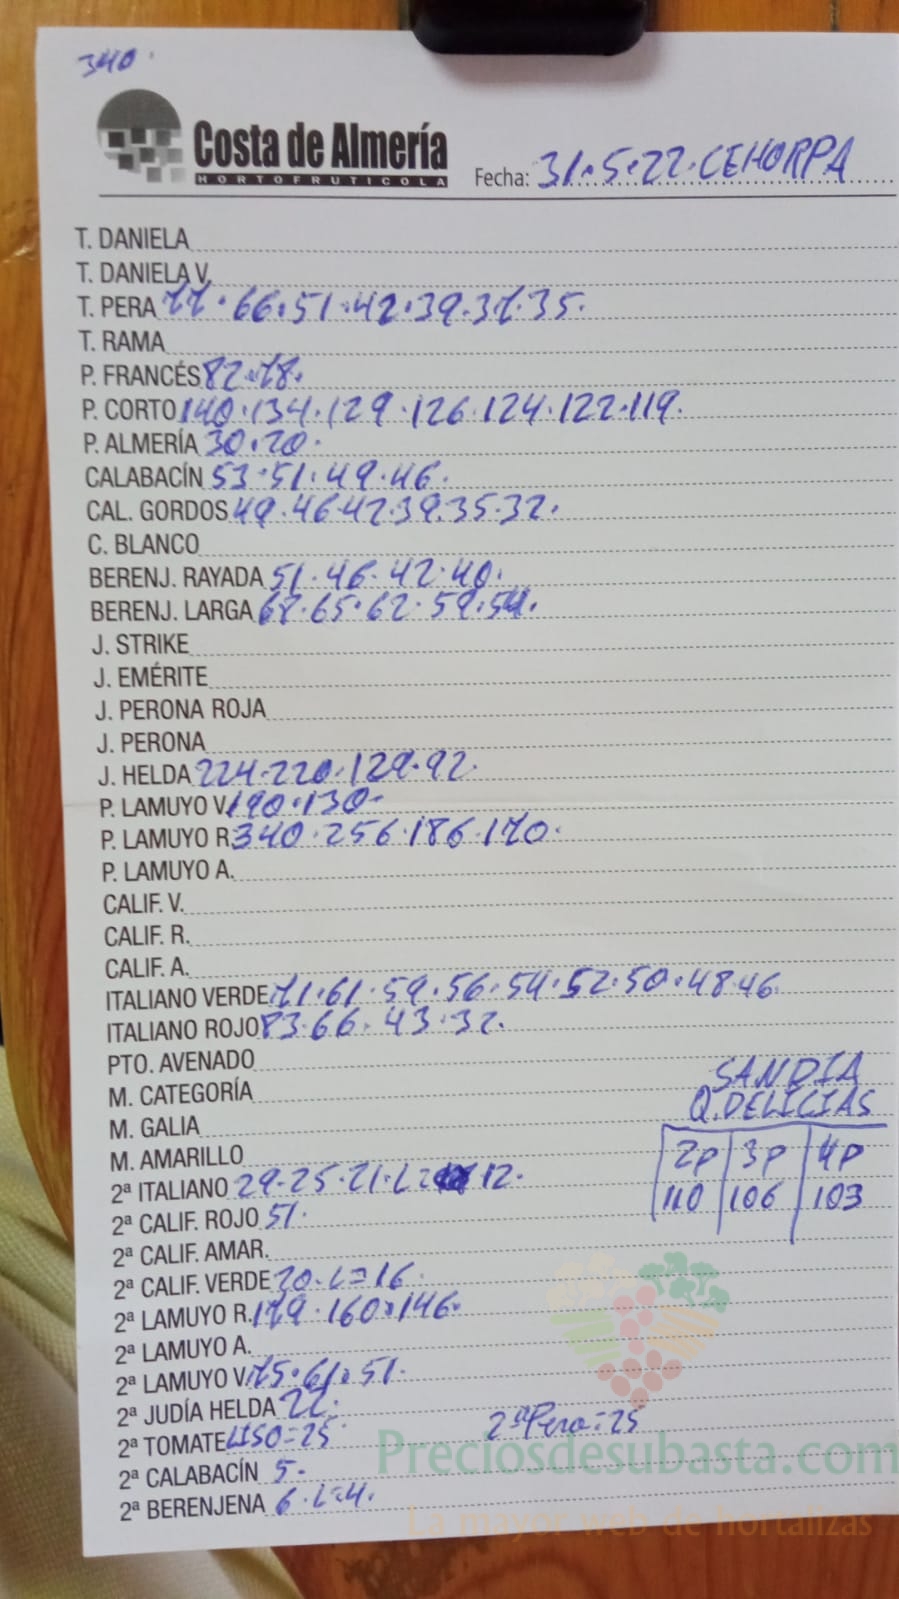 340.
Costa de Almería
HORTOFRUTICOLA
Fecha: 31.5.22.CEHORPA
T. DANIELA
T. DANIELA V.
T. PERA 77.66.51.42.39.37.35.
T. RAMA
P. FRANCÉS 82.78.
P. CORTO 140.134.129.126.124.122.119.
P. ALMERÍA 30.20.
CALABACÍN 53.51.49.46.
CAL. GORDOS 49.46.42.39.35.32.
C. BLANCO
BERENJ. RAYADA 51.46.42.40.
BERENJ. LARGA 67.65.62.59.54.
J. STRIKE
J. EMÉRITE
J. PERONA ROJA
J. PERONA
J. HELDA 224.220.129.92.
P. LAMUYO V. 190.130.
P. LAMUYO R. 340.256.186.170.
P. LAMUYO A.
CALIF. V.
CALIF. R.
CALIF. A.
ITALIANO VERDE 71.61.59.56.54.52.50.48.46.
ITALIANO ROJO 83.66.43.32.
PTO. AVENADO
M. CATEGORÍA
M. GALIA
M. AMARILLO
SANDIA
Q.DELICIAS
2P 3P 4P
110 106 103
2ª ITALIANO 29.25.21.L= 12.
2ª CALIF. ROJO 51.
2ª CALIF. AMAR.
2ª CALIF. VERDE 20.L=16.
2ª LAMUYO R. 179.160.146.
2ª LAMUYO A.
2ª LAMUYO V. 75.61.51.
2ª JUDÍA HELDA 22.
2ª TOMATE LISO=25 2ªPera=25
2ª CALABACÍN 5.
2ª BERENJENA 6.L=4.
Preciosdesubasta.com
La mayor web de hortalizas